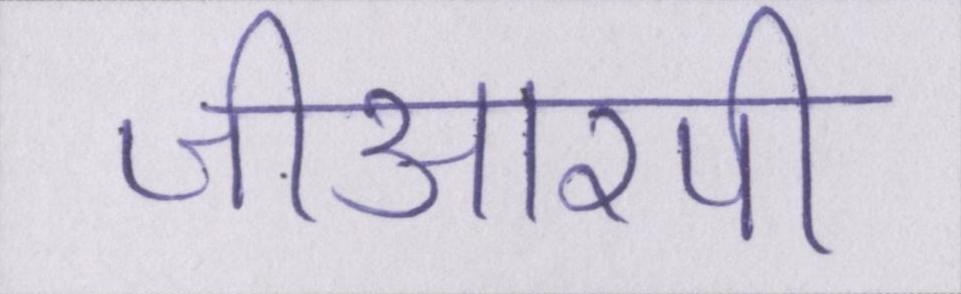 जीआरपी